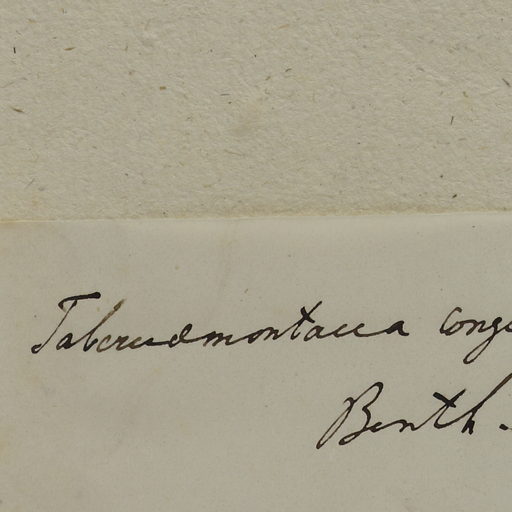 Tabernaemontana cong
Benth.